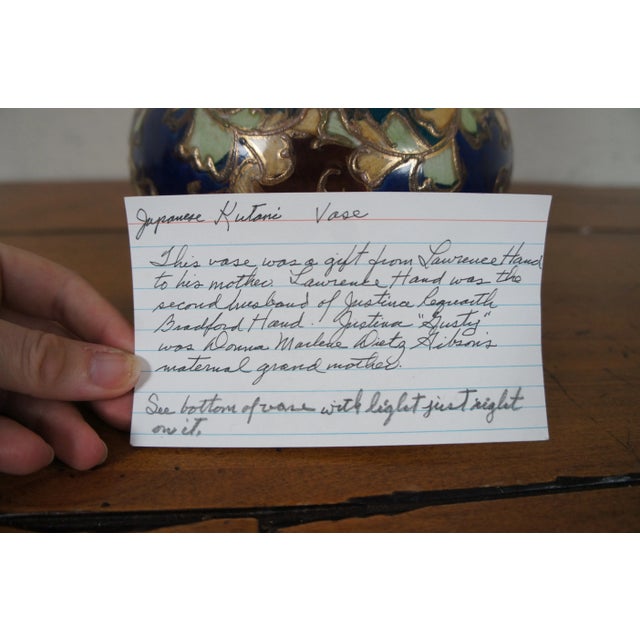 Japanese Kutani Vase
This vase was a gift from Lawrence Hand
to his mother. Lawrence Hand was the
second husband of Justina Requaith
Bradford Hand. Justina "Gusty"
was Donna Marlene Dietz Gibson's
maternal grand mother.
See bottom of vase with light just right
on it.